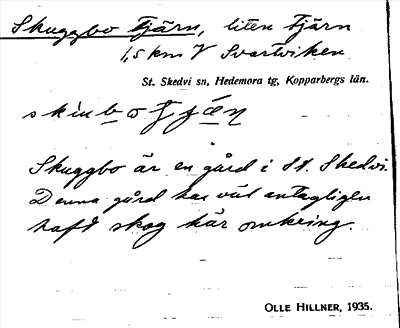 Skuggbo Tjärn, liten tjärn
1,5 km V Svartviken
St. Skedvi sn, Hedemora tg, Kopparbergs län.
Skuggbo är en gård i St. Skedvi.
Denna gård har väl antagligen
haft skog här omkring.
OLLE HILLNER, 1935.